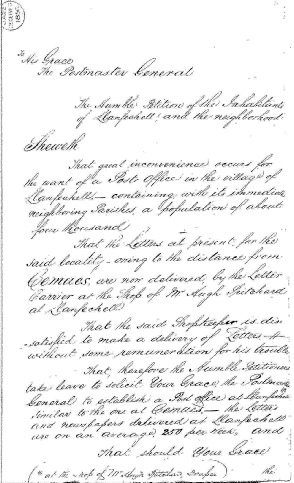 To His Grace
The Postmaster General
The Humble Petition of the Inhabitants
of Llanfechell, and the neighborhood
Sheweth
That great inconvenience occurs for
the want of a Post Office in the village of
Llanfechell,— containing, with its immediate
neighboring Parishes, a population of about
four thousand
That the Letters at present, for the
said locality,— owing to the distance from
Cemaes, are now delivered, by the Letter
Carrier at the Shop of Mr. Hugh Pritchard
at Llanfechell
That the said Shopkeeper is dis-
satisfied to make a delivery of Letters
without some remuneration for his trouble
That, therefore the Humble Petitioners
take leave to solicit Your Grace, the Postmaster
General to establish a Post office at Llanfechell
similar to the one at Cemaes,— the Letters
and newspapers delivered at Llanfechell
are on an average, 250 per week, and
That should Your Grace
(* at the Shop of Mr Hugh Pritchard, Draper)
the